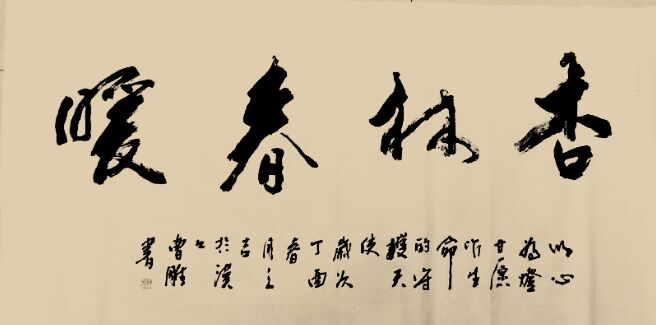 杏林春暖
以心
为燈
甘愿
作生
命
的守
護天
使
歲次
丁酉
春
月之
吉
於漢
口
曹雕
書